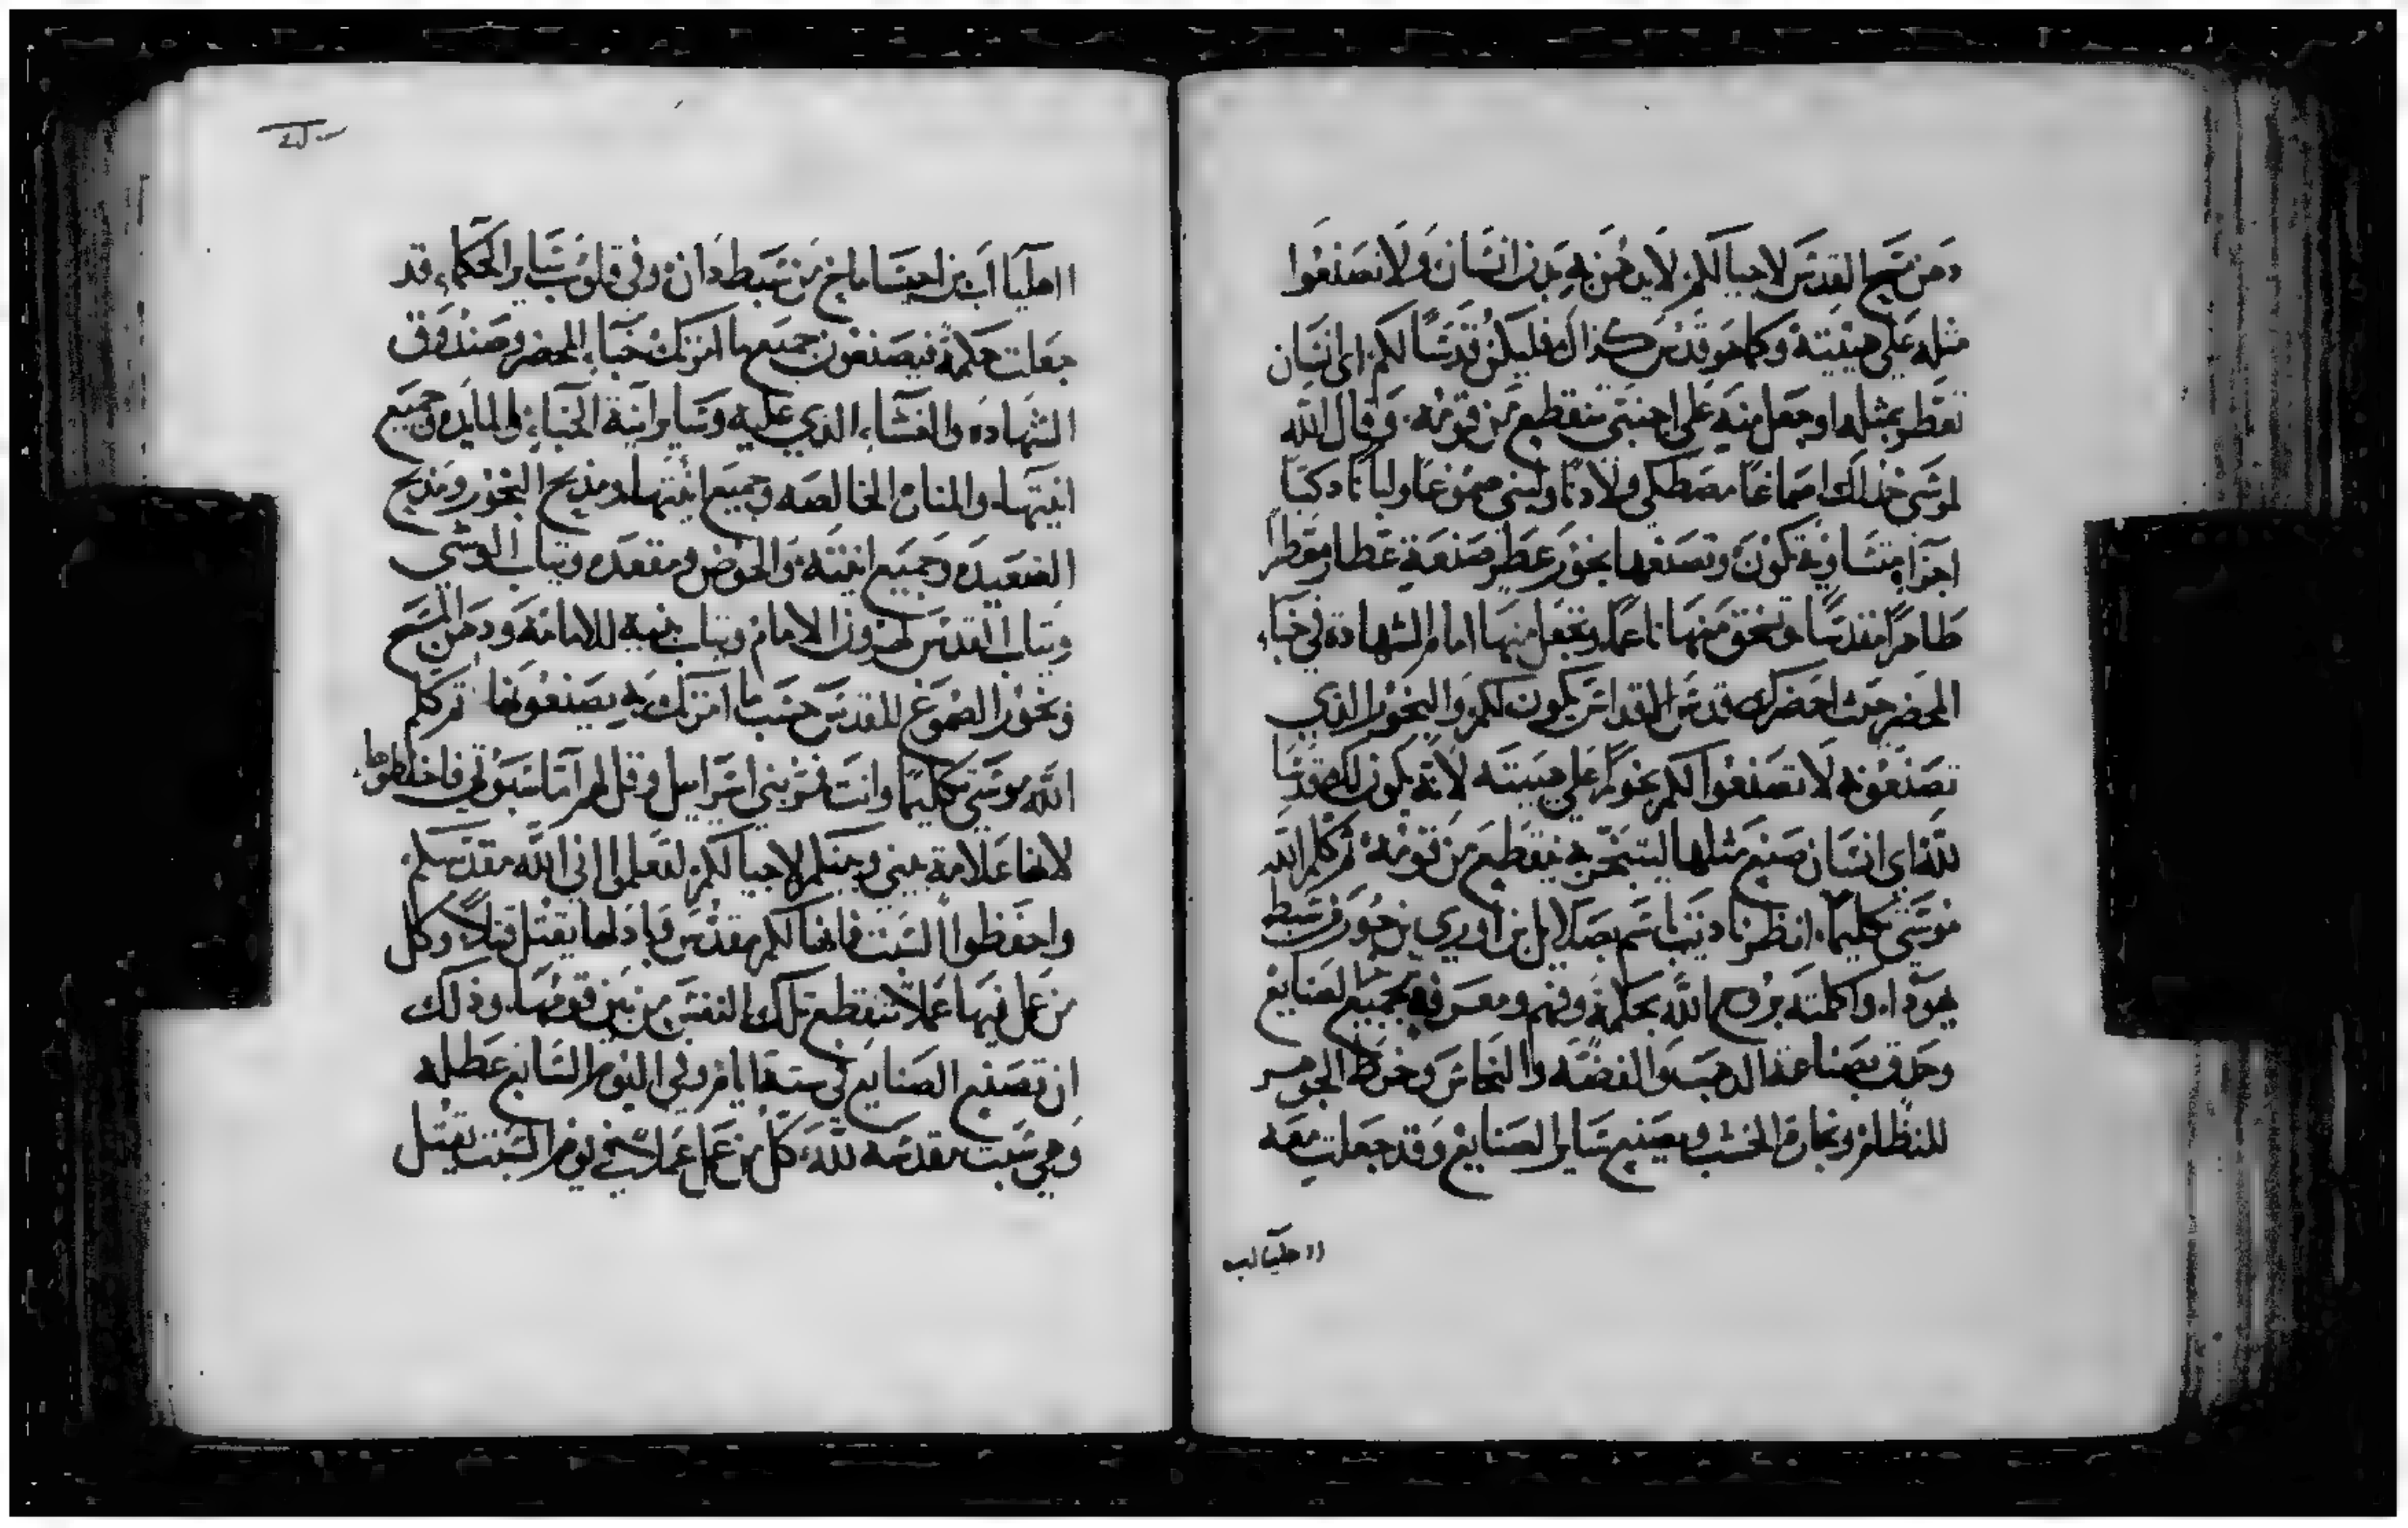 دهن مسح القدس لاجيالكم لايدهن به بدن انسان ولا تصنعوا
مثله على هيئته وكما هو قدس كذاك فليكن قدسا لكم اى انسان
تعطر بمثله او جعل منه على اجنبى ينقطع من قومه وقال الله
لموسى خذ لك اصماغا مصطكى ولاذنا ولبنى صموغا ولبانا دكيا
اجزا متساوية تكون وتصنعها بخور عطر صنعة عطار معطرا
طاهرا مقدسا وتسحق منها ناعما وتجعل منها امام الشهادة في خباء
المحضر حيث احضرك قدس القداس يكون لكم والبخور الذي
تصنعونه لا تصنعوا لكم بخورا على هيئته لانه يكون لك قدسا
لله اى انسان صنع مثلها ليتبخر به ينقطع من قومه ثم كلم الله
موسى تكليما انظر ناديت باسم بصلايل بن اوري بن حور من سبط
يهودا واكملته بروح الله بحكمة وفهم ومعرفة بجميع الصنايع
وحذق بصناعة الدهب والفضه والنحاس وخرط الجوهر
للنظام ونجارة الخشب ويصنع ساير الصنايع وقد جعلت معه
ااهليا اب
ااهليااب بن احيساماخ من سبط دان وفي قلوب ساير الحكماء قد
جعلت حكمة فيصنعون جميع ما امرتك خباء المحضر وصندوق
الشهاده والغشاء الذي عليه وساير انية الخباء والمايده وجميع
انيتها والمناره الخالصه وجميع انيتها ومذبح البخور ومذبح
الصعيده وجميع انيته والحوض ومقعده وثياب الوشي
وثياب القدس لهرون الامام وثياب بنيه للامامة ودهن المسح
وبخور الصموغ للقدس حسبما امرتك به يصنعونها ثم كلم
الله موسى تكليما وانت فمر بني اسراييل وقل لهم اما سبوتي فاحفظوها
لانها علامة بيني وبينكم لاجيالكم لتعلموا اني الله مقدسكم
واحفظوا السبت فانها لكم مقدس وبادلها يقتل قتلا وكل
من عمل فيها عملا تنقطع تلك النفس من بين قومها وذلك
ان تصنع الصنايع في ستة ايام وفي اليوم السابع عطله
وهي سبت مقدسه لله كل من عمل عملا في يوم السبت يقتل